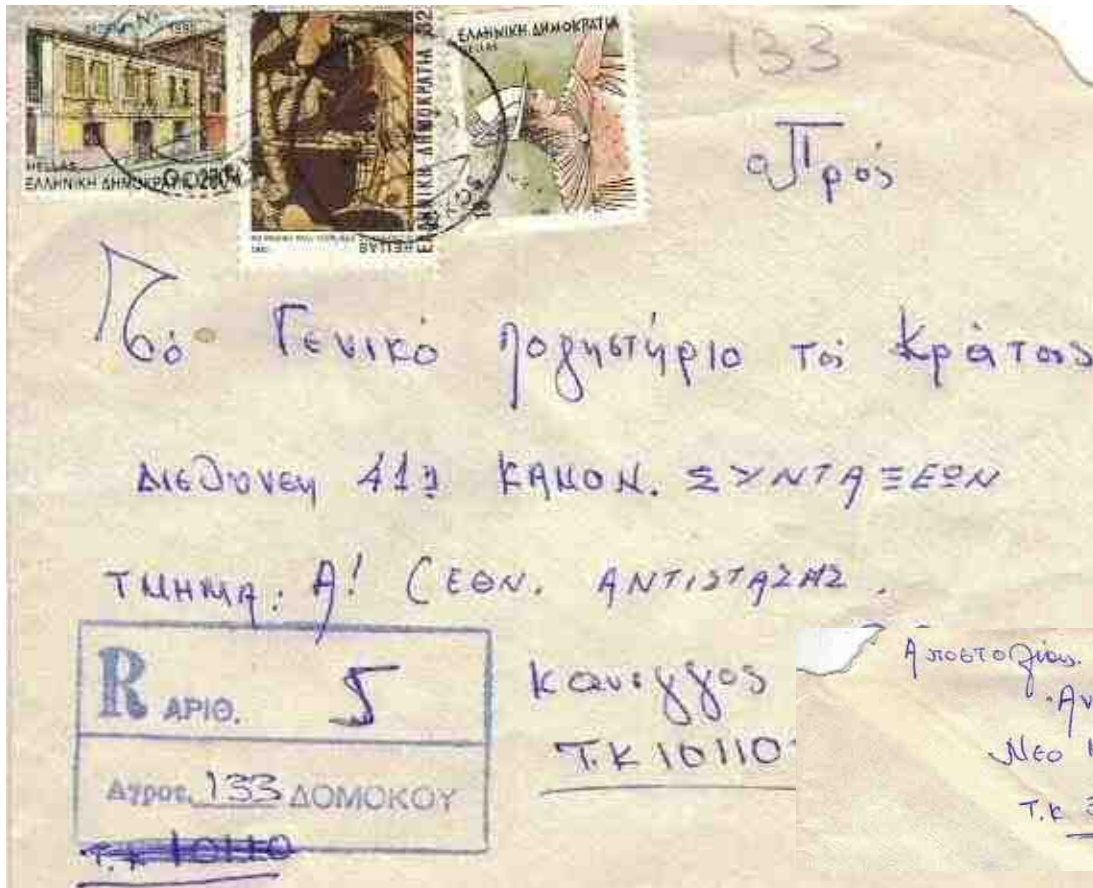 1990
HELLAS
ΕΛΛΗΝΙΚΗ ΔΗΜΟΚΡΑΤΙΑ 20
ΕΛΛΗΝΙΚΗ ΔΗΜΟΚΡΑΤΙΑ 32
HELLAS
ΕΛΛΗΝΙΚΗ ΔΗΜΟΚΡΑΤΙΑ
HELLAS
133
Πρός
Τό Γενικό Λογηστήριο τοῦ Κράτους
Διεθυνση 41η ΚΑΝΟΝ. ΣΥΝΤΑΞΕΩΝ
ΤΜΗΜΑ: Α! (ΕΘΝ. ΑΝΤΙΣΤΑΣΗΣ.
R ΑΡΙΘ. 5
Αγροτ. 133 ΔΟΜΟΚΟΥ
Τ.Κ 10110
Κανιγγος
Τ.Κ 10110
Αποστολίας
Νεο
Τ.Κ 3